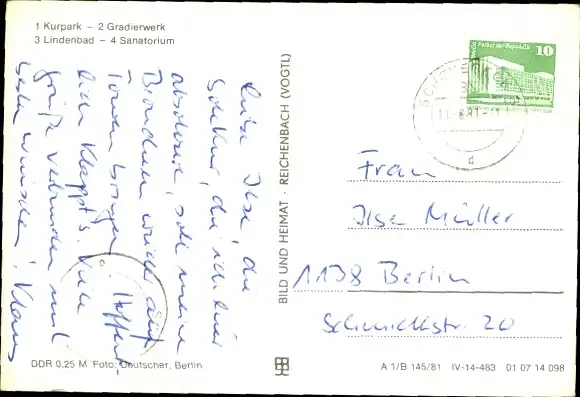 1 Kurpark – 2 Gradierwerk
3 Lindenbad – 4 Sanatorium
Liebe Ilse, die
Solekur, die ich hier
absolviere, soll meine
Bronchien wieder auf
Touren bringen. Hoffent-
lich klappt's. Viele
Grüße verbunden mit
besten Wünschen! Klaus
BILD UND HEIMAT · REICHENBACH (VOGTL)
Palast der Republik
10
DDR
Frau
Ilse Müller
1138 Berlin
Schmidtstr. 20
DDR 0,25 M Foto: Deutscher, Berlin
A 1/B 145/81 IV-14-483 01 07 14 098